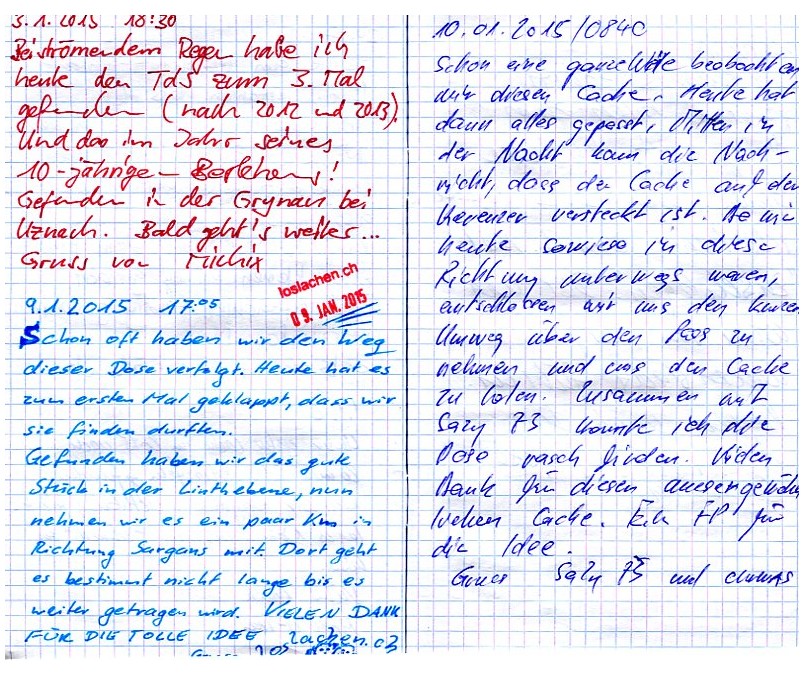 3.1.2015 18:30
Bei strömendem Regen habe ich
heute den TdS zum 3. Mal
gefunden (nach 2012 und 2013).
Und das im Jahr seines
10-jährigen Bestehens!
Gefunden in der Grynau bei
Uznach. Bald geht's weiter...
Gruss von Michix
loslachen.ch
09. JAN. 2015
9.1.2015 17:05
Schon oft haben wir den Weg
dieser Dose verfolgt. Heute hat es
zum ersten Mal geklappt, dass wir
sie finden durften.
Gefunden haben wir das gute
Stück in der Linthebene, nun
nehmen wir es ein paar Km in
Richtung Sargans mit. Dort geht
es bestimmt nicht lange bis es
weiter getragen wird. VIELEN DANK
FÜR DIE TOLLE IDEE
10.01.2015/0840
Schon eine ganze Weile beobachten
wir diesen Cache. Heute hat
dann alles gepasst, Mitten in
der Nacht kam die Nach-
richt, dass der Cache auf dem
Kerenzer versteckt ist. Da wir
heute sowieso in diese
Richtung unterwegs waren,
entschlossen wir uns den kurzen
Umweg über den Pass zu
nehmen und uns den Cache
zu holen. Zusammen mit
Sazy 73 konnte ich die
Dose rasch finden. Vielen
Dank für diesen aussergewöhn
lichen Cache. Ein FP für
die Idee.
Gruss Sazy 73 und